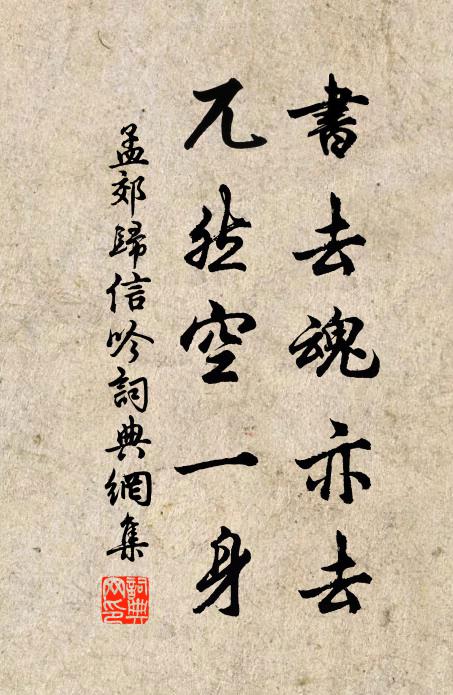 書去魂亦去
兀然空一身
孟郊歸信吟詞典網集
詞典網印